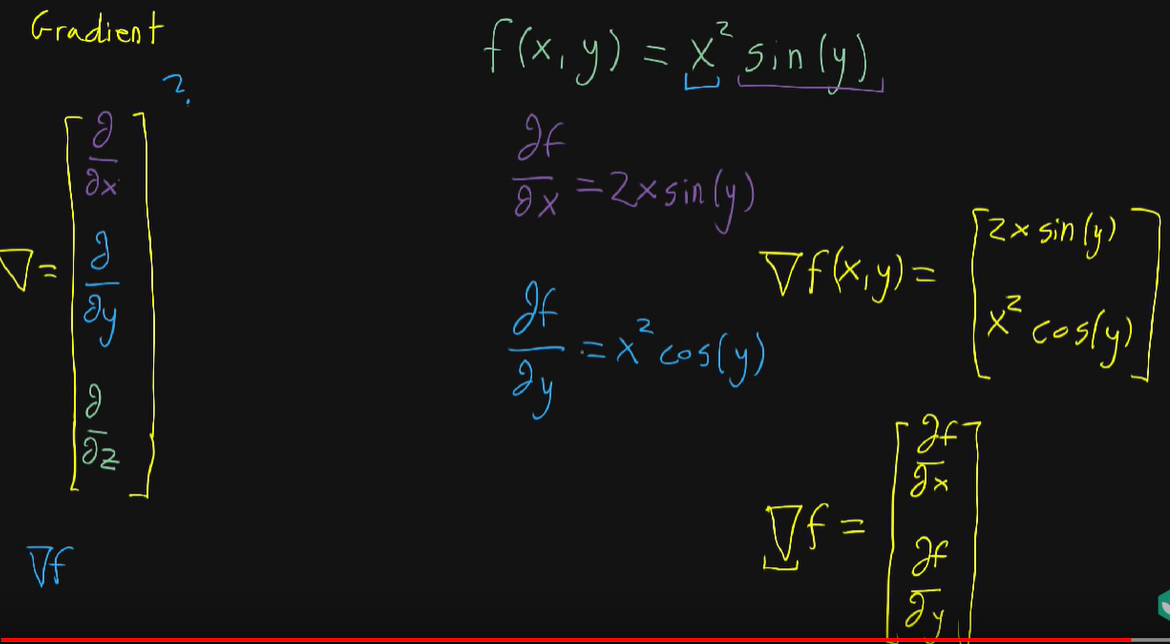 Gradient
?
∇ = [ ∂/∂x ∂/∂y ∂/∂z ]
∇f
f(x,y) = x² sin(y)
∂f/∂x = 2x sin(y)
∂f/∂y = x² cos(y)
∇f(x,y) = [ 2x sin(y) x² cos(y) ]
∇f = [ ∂f/∂x ∂f/∂y ]